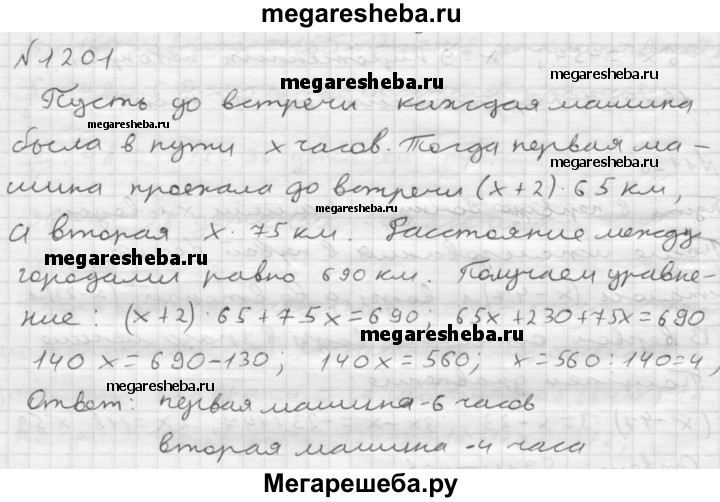 megaresheba.ru
N1201
megaresheba.ru
megaresheba.ru
Пусть до встречи каждая машина
megaresheba.ru
была в пути x часов. Тогда первая ма-
шина проехала до встречи (x+2)·65 км,
megaresheba.ru
а вторая x·75 км. Расстояние между
megaresheba.ru
городами равно 690 км. Получаем уравне-
ние: (x+2)·65+75x=690; 65x+230+75x=690
megaresheba.ru
140x=690-130; 140x=560; x=560:140=4,
megaresheba.ru
Ответ: первая машина-6 часов
вторая машина-4 часа
Мегарешеба.ру